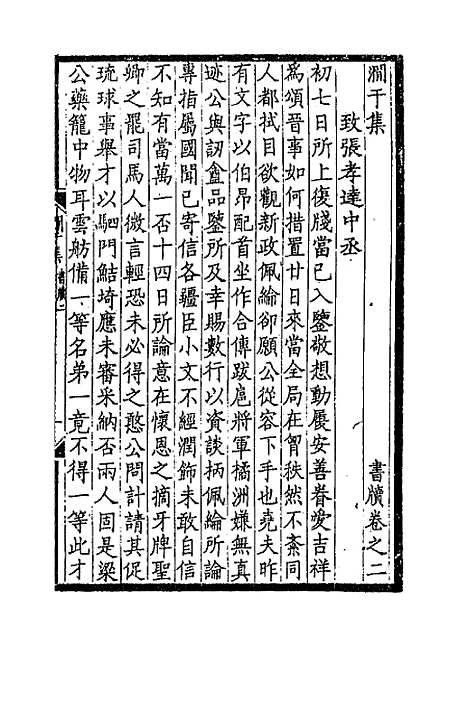 澗于集　書牘卷之二
致張孝達中丞
初七日所上復牋當已入鑒敬想動履安善眷愛吉祥
為頌晉事如何措置廿日來當全局在胷秩然不紊同
人都拭目欲觀新政佩綸卻願公從容下手也堯夫昨
有文字以伯昂配首坐作合傳跋扈將軍橘洲嫌無真
迹公與訒盦品鑒所及幸賜數行以資談柄佩綸所論
專指屬國聞已寄信各疆臣小文不經潤飾未敢自信
不知有當萬一否十四日所論意在懷恩之摘牙牌聖
卿之罷司馬人微言輕恐未必得之憨公問計請其促
琉球事舉才以駟門鮚埼應未審采納否兩人固是梁
公藥籠中物耳雲舫備一等名弟一竟不得一等此才
澗于集　書牘二
一